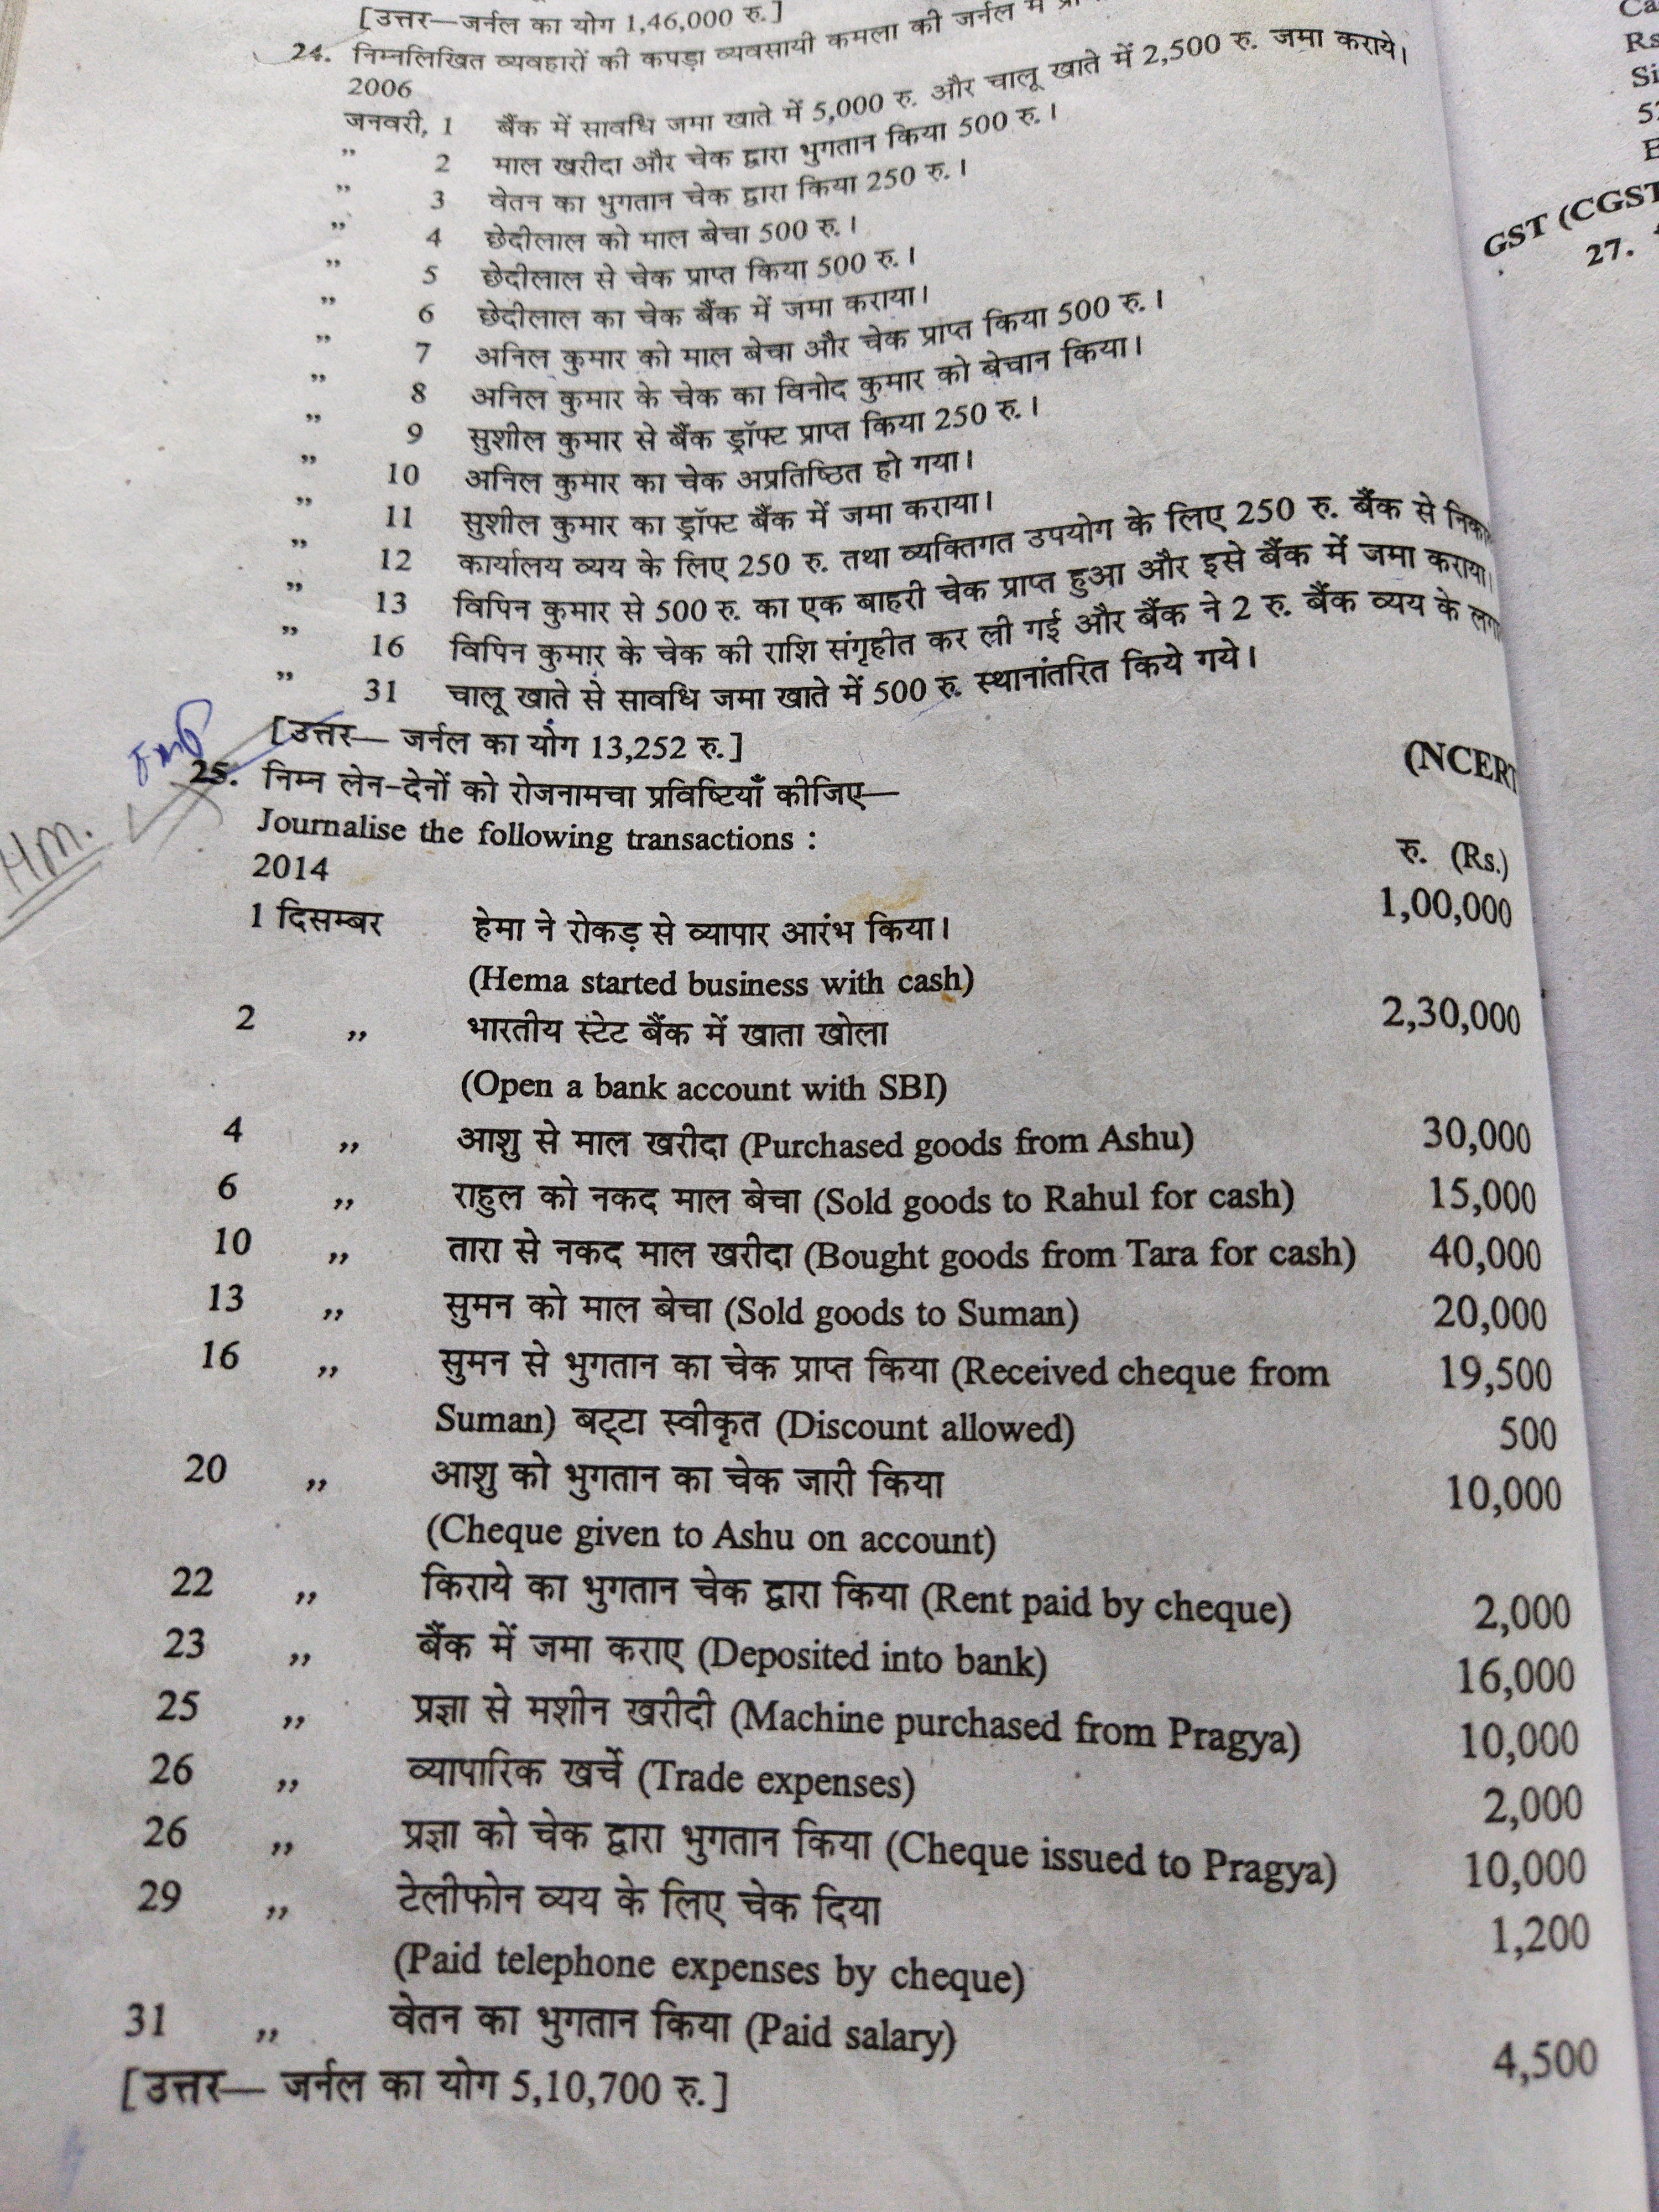 [उत्तर—जर्नल का योग 1,46,000 रु.]
24. निम्नलिखित व्यवहारों की कपड़ा व्यवसायी कमला की जर्नल में
2006
जनवरी, 1 बैंक में सावधि जमा खाते में 5,000 रु. और चालू खाते में 2,500 रु. जमा कराये।
” 2 माल खरीदा और चेक द्वारा भुगतान किया 500 रु.।
” 3 वेतन का भुगतान चेक द्वारा किया 250 रु.।
” 4 छेदीलाल को माल बेचा 500 रु.।
” 5 छेदीलाल से चेक प्राप्त किया 500 रु.।
” 6 छेदीलाल का चेक बैंक में जमा कराया।
” 7 अनिल कुमार को माल बेचा और चेक प्राप्त किया 500 रु.।
” 8 अनिल कुमार के चेक का विनोद कुमार को बेचान किया।
” 9 सुशील कुमार से बैंक ड्रॉफ्ट प्राप्त किया 250 रु.।
” 10 अनिल कुमार का चेक अप्रतिष्ठित हो गया।
” 11 सुशील कुमार का ड्रॉफ्ट बैंक में जमा कराया।
” 12 कार्यालय व्यय के लिए 250 रु. तथा व्यक्तिगत उपयोग के लिए 250 रु. बैंक से
” 13 विपिन कुमार से 500 रु. का एक बाहरी चेक प्राप्त हुआ और इसे बैंक में जमा कराया।
” 16 विपिन कुमार के चेक की राशि संगृहीत कर ली गई और बैंक ने 2 रु. बैंक व्यय के
” 31 चालू खाते से सावधि जमा खाते में 500 रु. स्थानांतरित किये गये।
[उत्तर— जर्नल का योग 13,252 रु.]
Imp
H.M.
25. निम्न लेन-देनों को रोजनामचा प्रविष्टियाँ कीजिए— (NCERT
Journalise the following transactions :
2014 रु. (Rs.)
1 दिसम्बर हेमा ने रोकड़ से व्यापार आरंभ किया। 1,00,000
(Hema started business with cash)
2 ,, भारतीय स्टेट बैंक में खाता खोला 2,30,000
(Open a bank account with SBI)
4 ,, आशु से माल खरीदा (Purchased goods from Ashu) 30,000
6 ,, राहुल को नकद माल बेचा (Sold goods to Rahul for cash) 15,000
10 ,, तारा से नकद माल खरीदा (Bought goods from Tara for cash) 40,000
13 ,, सुमन को माल बेचा (Sold goods to Suman) 20,000
16 ,, सुमन से भुगतान का चेक प्राप्त किया (Received cheque from 19,500
Suman) बट्टा स्वीकृत (Discount allowed) 500
20 ,, आशु को भुगतान का चेक जारी किया 10,000
(Cheque given to Ashu on account)
22 ,, किराये का भुगतान चेक द्वारा किया (Rent paid by cheque) 2,000
23 ,, बैंक में जमा कराए (Deposited into bank) 16,000
25 ,, प्रज्ञा से मशीन खरीदी (Machine purchased from Pragya) 10,000
26 ,, व्यापारिक खर्चे (Trade expenses) 2,000
26 ,, प्रज्ञा को चेक द्वारा भुगतान किया (Cheque issued to Pragya) 10,000
29 ,, टेलीफोन व्यय के लिए चेक दिया 1,200
(Paid telephone expenses by cheque)
31 ,, वेतन का भुगतान किया (Paid salary) 4,500
[उत्तर— जर्नल का योग 5,10,700 रु.]
Ca
Rs
Si
GST (CGST
27.